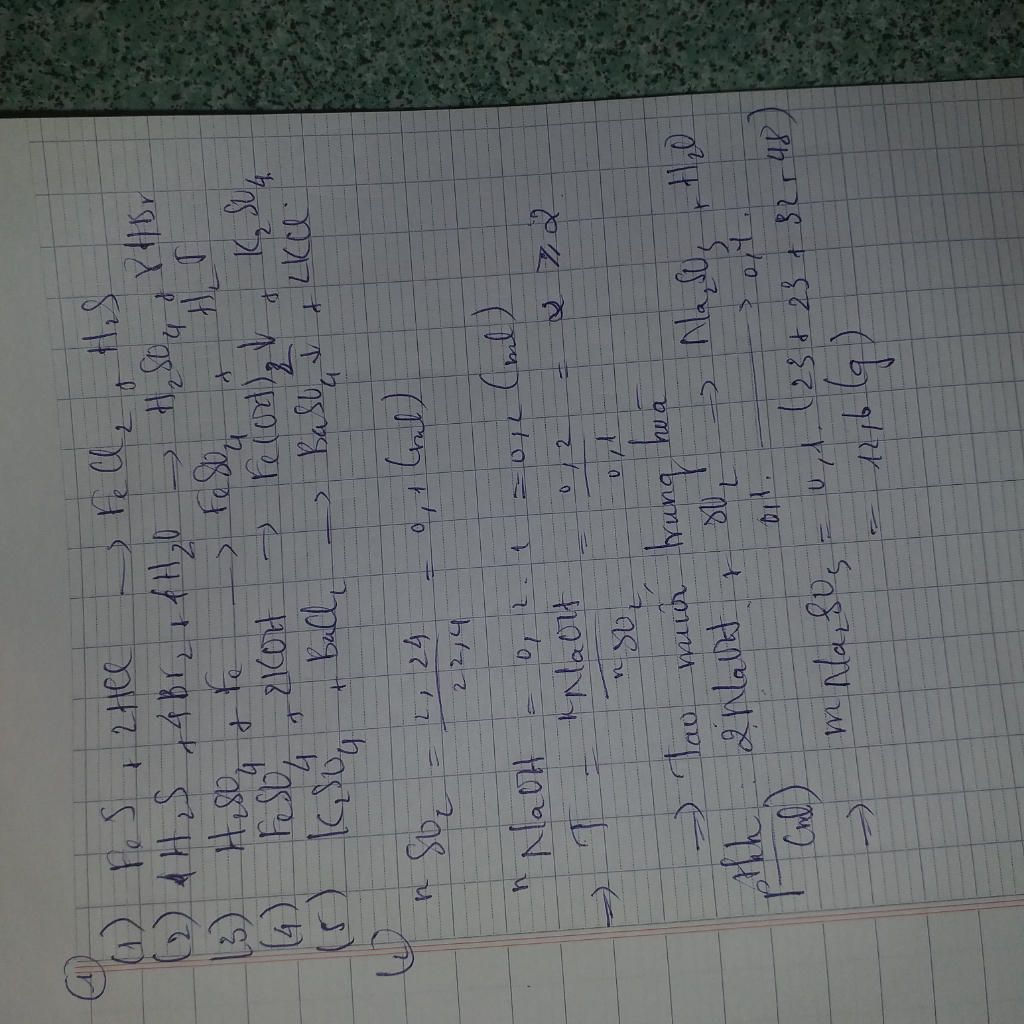 ①
(1) FeS + 2HCl → FeCl₂ + H₂S
(2) H₂S + 4Br₂ + 4H₂O → H₂SO₄ + 8HBr
(3) H₂SO₄ + Fe → FeSO₄ + H₂↑
(4) FeSO₄ + 2KOH → Fe(OH)₂↓ + K₂SO₄
(5) K₂SO₄ + BaCl₂ → BaSO₄↓ + 2KCl.
②
n SO₂ = 2,24 / 22,4 = 0,1 (mol)
n NaOH = 0,2 . 1 = 0,2 (mol)
⇒ T = nNaOH / nSO₂ = 0,2 / 0,1 = 2 ≥ 2
⇒ Tạo muối trung hoà
pthh 2NaOH + SO₂ → Na₂SO₃ + H₂O
(mol) 0,1. → 0,1.
⇒ m Na₂SO₃ = 0,1. (23 + 23 + 32 + 48)
= 12,6 (g)